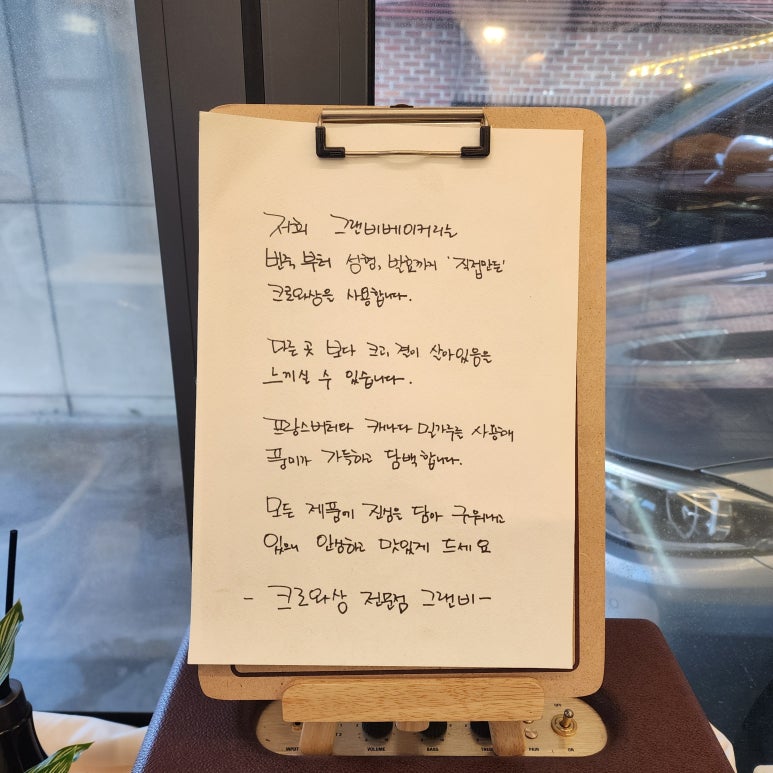 저희 그랜비베이커리는
반죽부터 성형, 발효까지 '직접만든'
크로와상을 사용합니다.
다른 곳 보다 크고, 결이 살아있음을
느끼실 수 있습니다.
프랑스버터와 캐나다 밀가루를 사용해
풍미가 가득하고 담백합니다.
모든 제품에 진심을 담아 구워내고
있으니 안심하고 맛있게 드세요
- 크로와상 전문점 그랜비 -
INPUT
VOLUME
BASS
OFF
ON